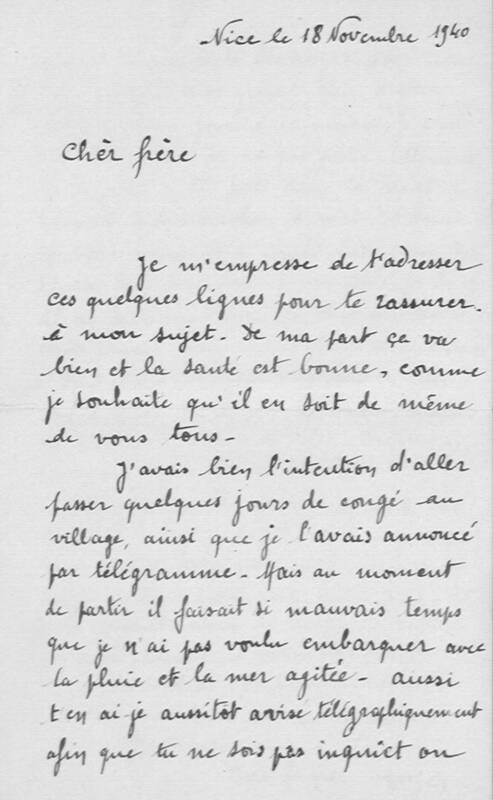 Nice le 18 Novembre 1940
Chèr frère
Je m'empresse de t'adresser
ces quelques lignes pour te rassurer.
à mon sujet. De ma part ça va
bien et la santé est bonne, comme
je souhaite qu'il en soit de même
de vous tous -
J'avais bien l'intention d'aller
passer quelques jours de congé au
village, ainsi que je l'avais annoncé
par télégramme - Mais au moment
de partir il faisait si mauvais temps
que je n'ai pas voulu embarquer avec
la pluie et la mer agitée - aussi
t en ai je aussitot avisé télégraphiquement
afin que tu ne sois pas inquiet ou